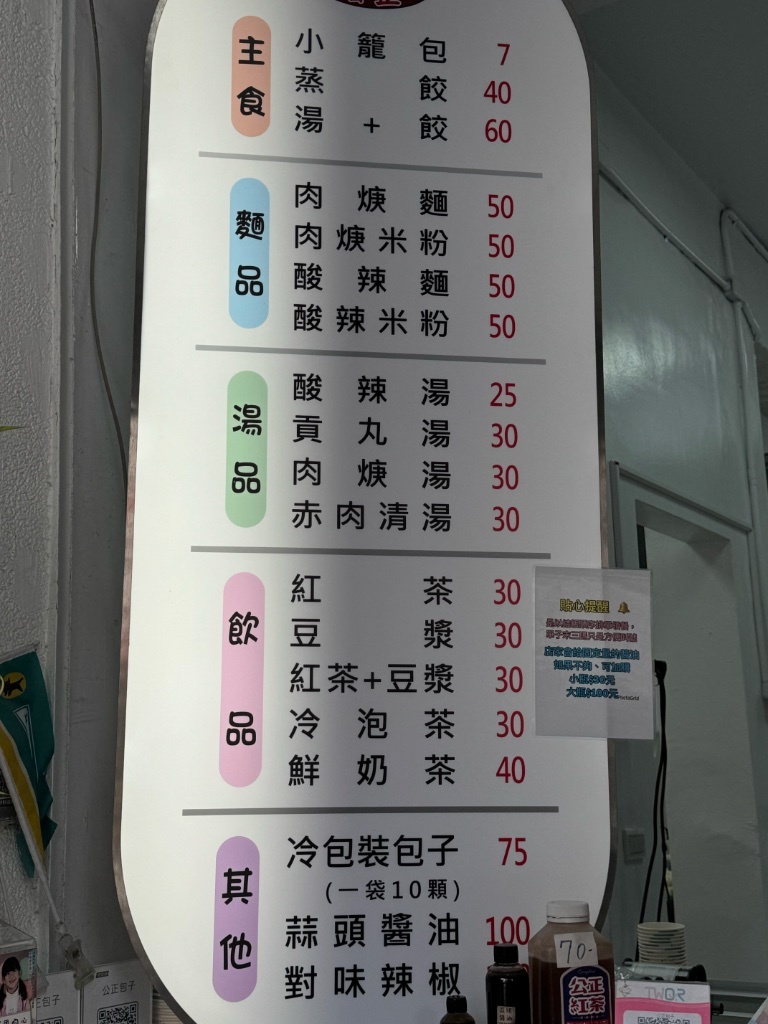 主食
小籠包 7
蒸餃 40
湯+餃 60
麵品
肉焿麵 50
肉焿米粉 50
酸辣麵 50
酸辣米粉 50
湯品
酸辣湯 25
貢丸湯 30
肉焿湯 30
赤肉清湯 30
飲品
紅茶 30
豆漿 30
紅茶+豆漿 30
冷泡茶 30
鮮奶茶 40
其他
冷包裝包子 75
(一袋10顆)
蒜頭醬油 100
對味辣椒
貼心提醒
如果不夠、可加購
小瓶$30元
大瓶$100元
70-
公正
紅茶
公正包子
TWQR